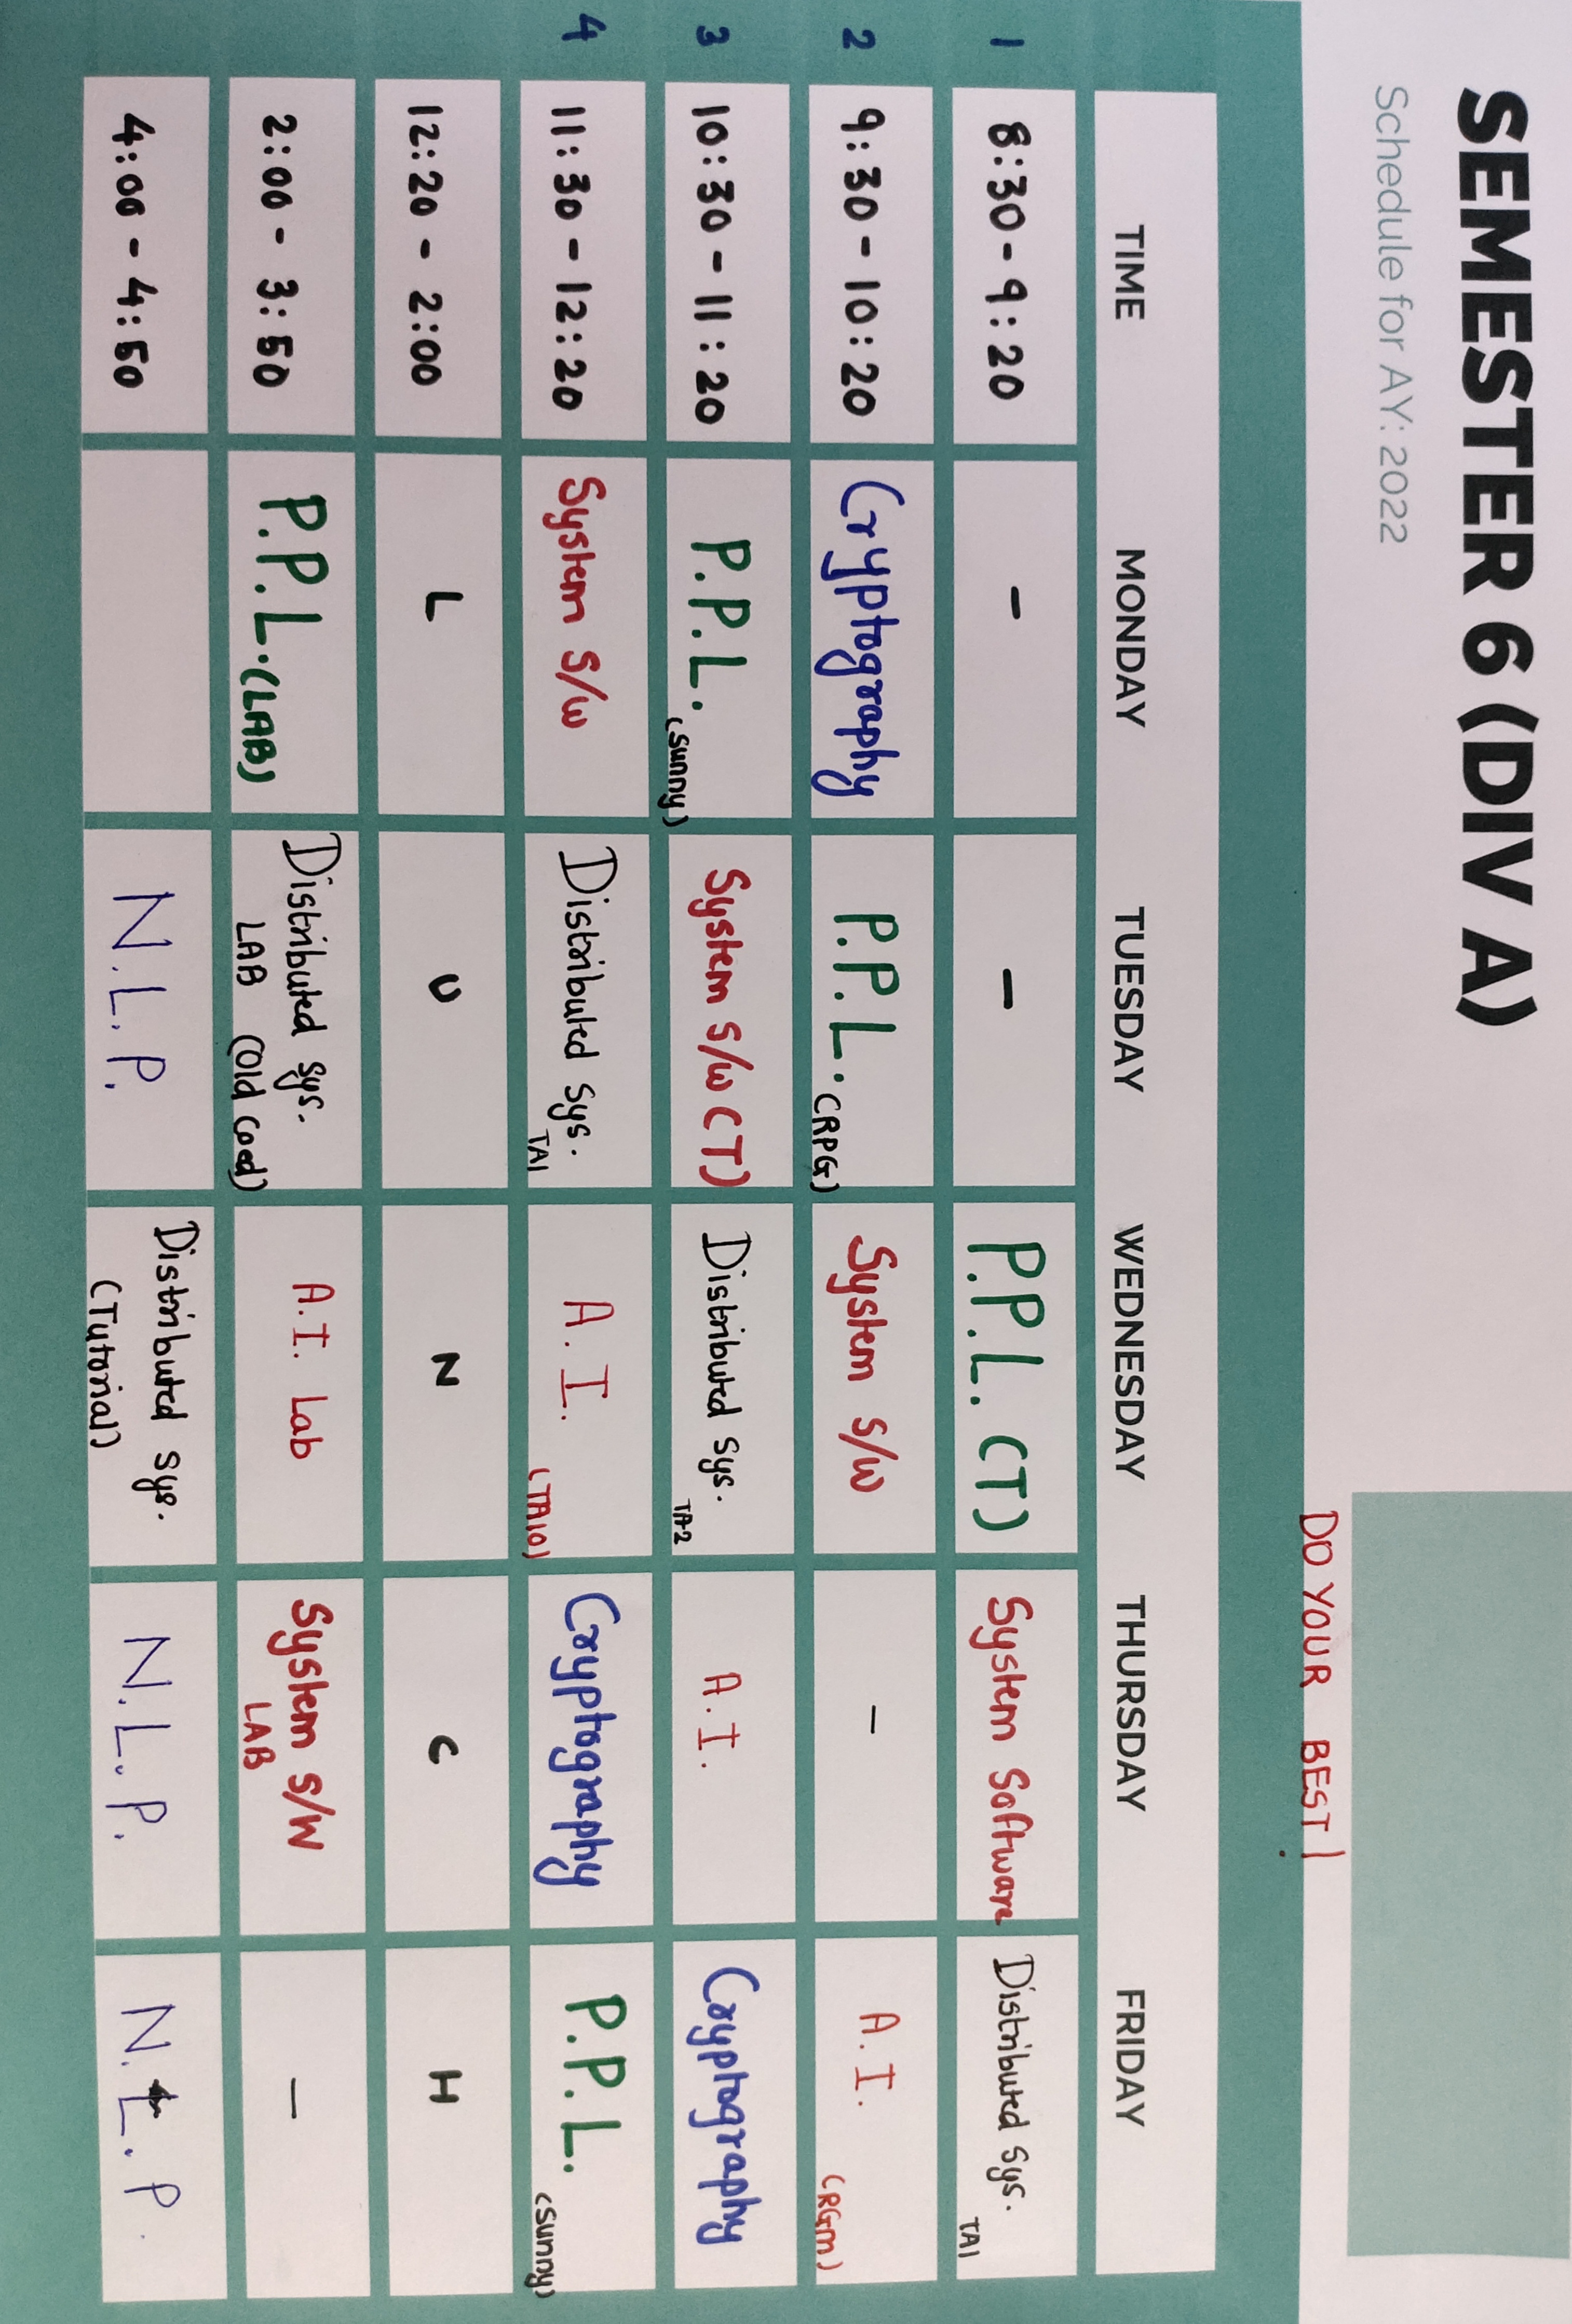 SEMESTER 6 (DIV A)
Schedule for AY: 2022
DO YOUR BEST!
TIME MONDAY TUESDAY WEDNESDAY THURSDAY FRIDAY
1 8:30 - 9:20 - - P.P.L. (T) System Software Distributed Sys. TA1
2 9:30 - 10:20 Cryptography P.P.L. (RPG) System S/W - A.I. (RGM)
3 10:30 - 11:20 P.P.L. (Sunny) System S/W (T) Distributed Sys. TA2 A.I. Cryptography
4 11:30 - 12:20 System S/W Distributed Sys. TA1 A.I. (TA10) Cryptography P.P.L. (Sunny)
12:20 - 2:00 L U N C H
2:00 - 3:50 P.P.L. (LAB) Distributed Sys. LAB (Old Coed) A.I. Lab System S/W LAB -
4:00 - 4:50 N.L.P. Distributed Sys. (Tutorial) N.L.P. N.L.P.